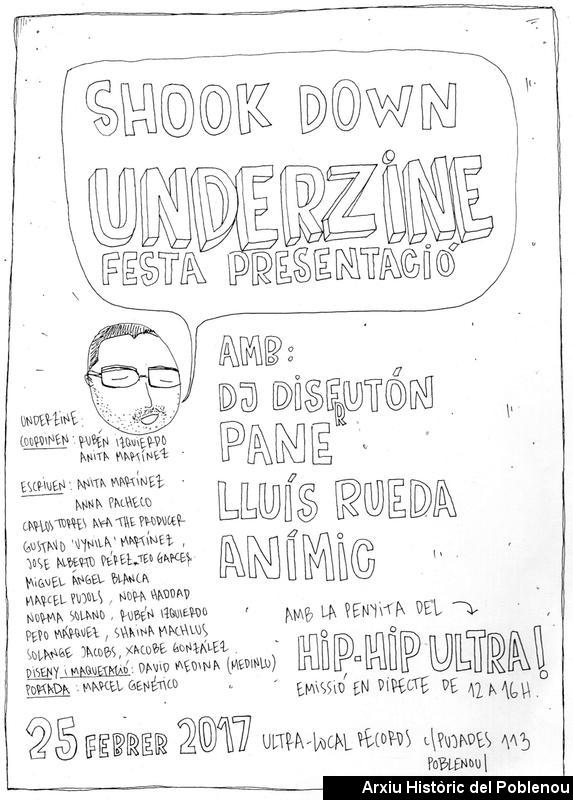 SHOOK DOWN
UNDERZiNE
FESTA PRESENTACIÓ
AMB:
DJ DiSFRUTÓN
PANE
LLUÍS RUEDA
ANÍMiC
UNDERZINE:
COORDINEN: RUBÉN IZQUIERDO
ANITA MARTÍNEZ
ESCRIUEN: ANITA MARTÍNEZ
ANNA PACHECO
CARLOS TORRES AKA THE PRODUCER
GUSTAVO 'VYNILA' MARTÍNEZ,
JOSE ALBERTO PÉREZ, TEO GARCES
MIGUEL ÁNGEL BLANCA
MARCEL PUJOLS, NORA HADDAD
NORMA SOLANO, RUBÉN IZQUIERDO
PEPO MÁRQUEZ, SHAINA MACHLUS
SOLANGE JACOBS, XACOBE GONZÁLEZ
DISENY i MAQUETACIÓ: DAVID MEDINA (MEDINLU)
PORTADA: MARCEL GENÉTICO
AMB LA PENYITA DEL
HiP-HiP ULTRA!
EMISSIÓ EN DIRECTE DE 12 A 16H.
25 FEBRER 2017 ULTRA-LOCAL RECORDS c/PUJADES 113
POBLENOU
Arxiu Històric del Poblenou